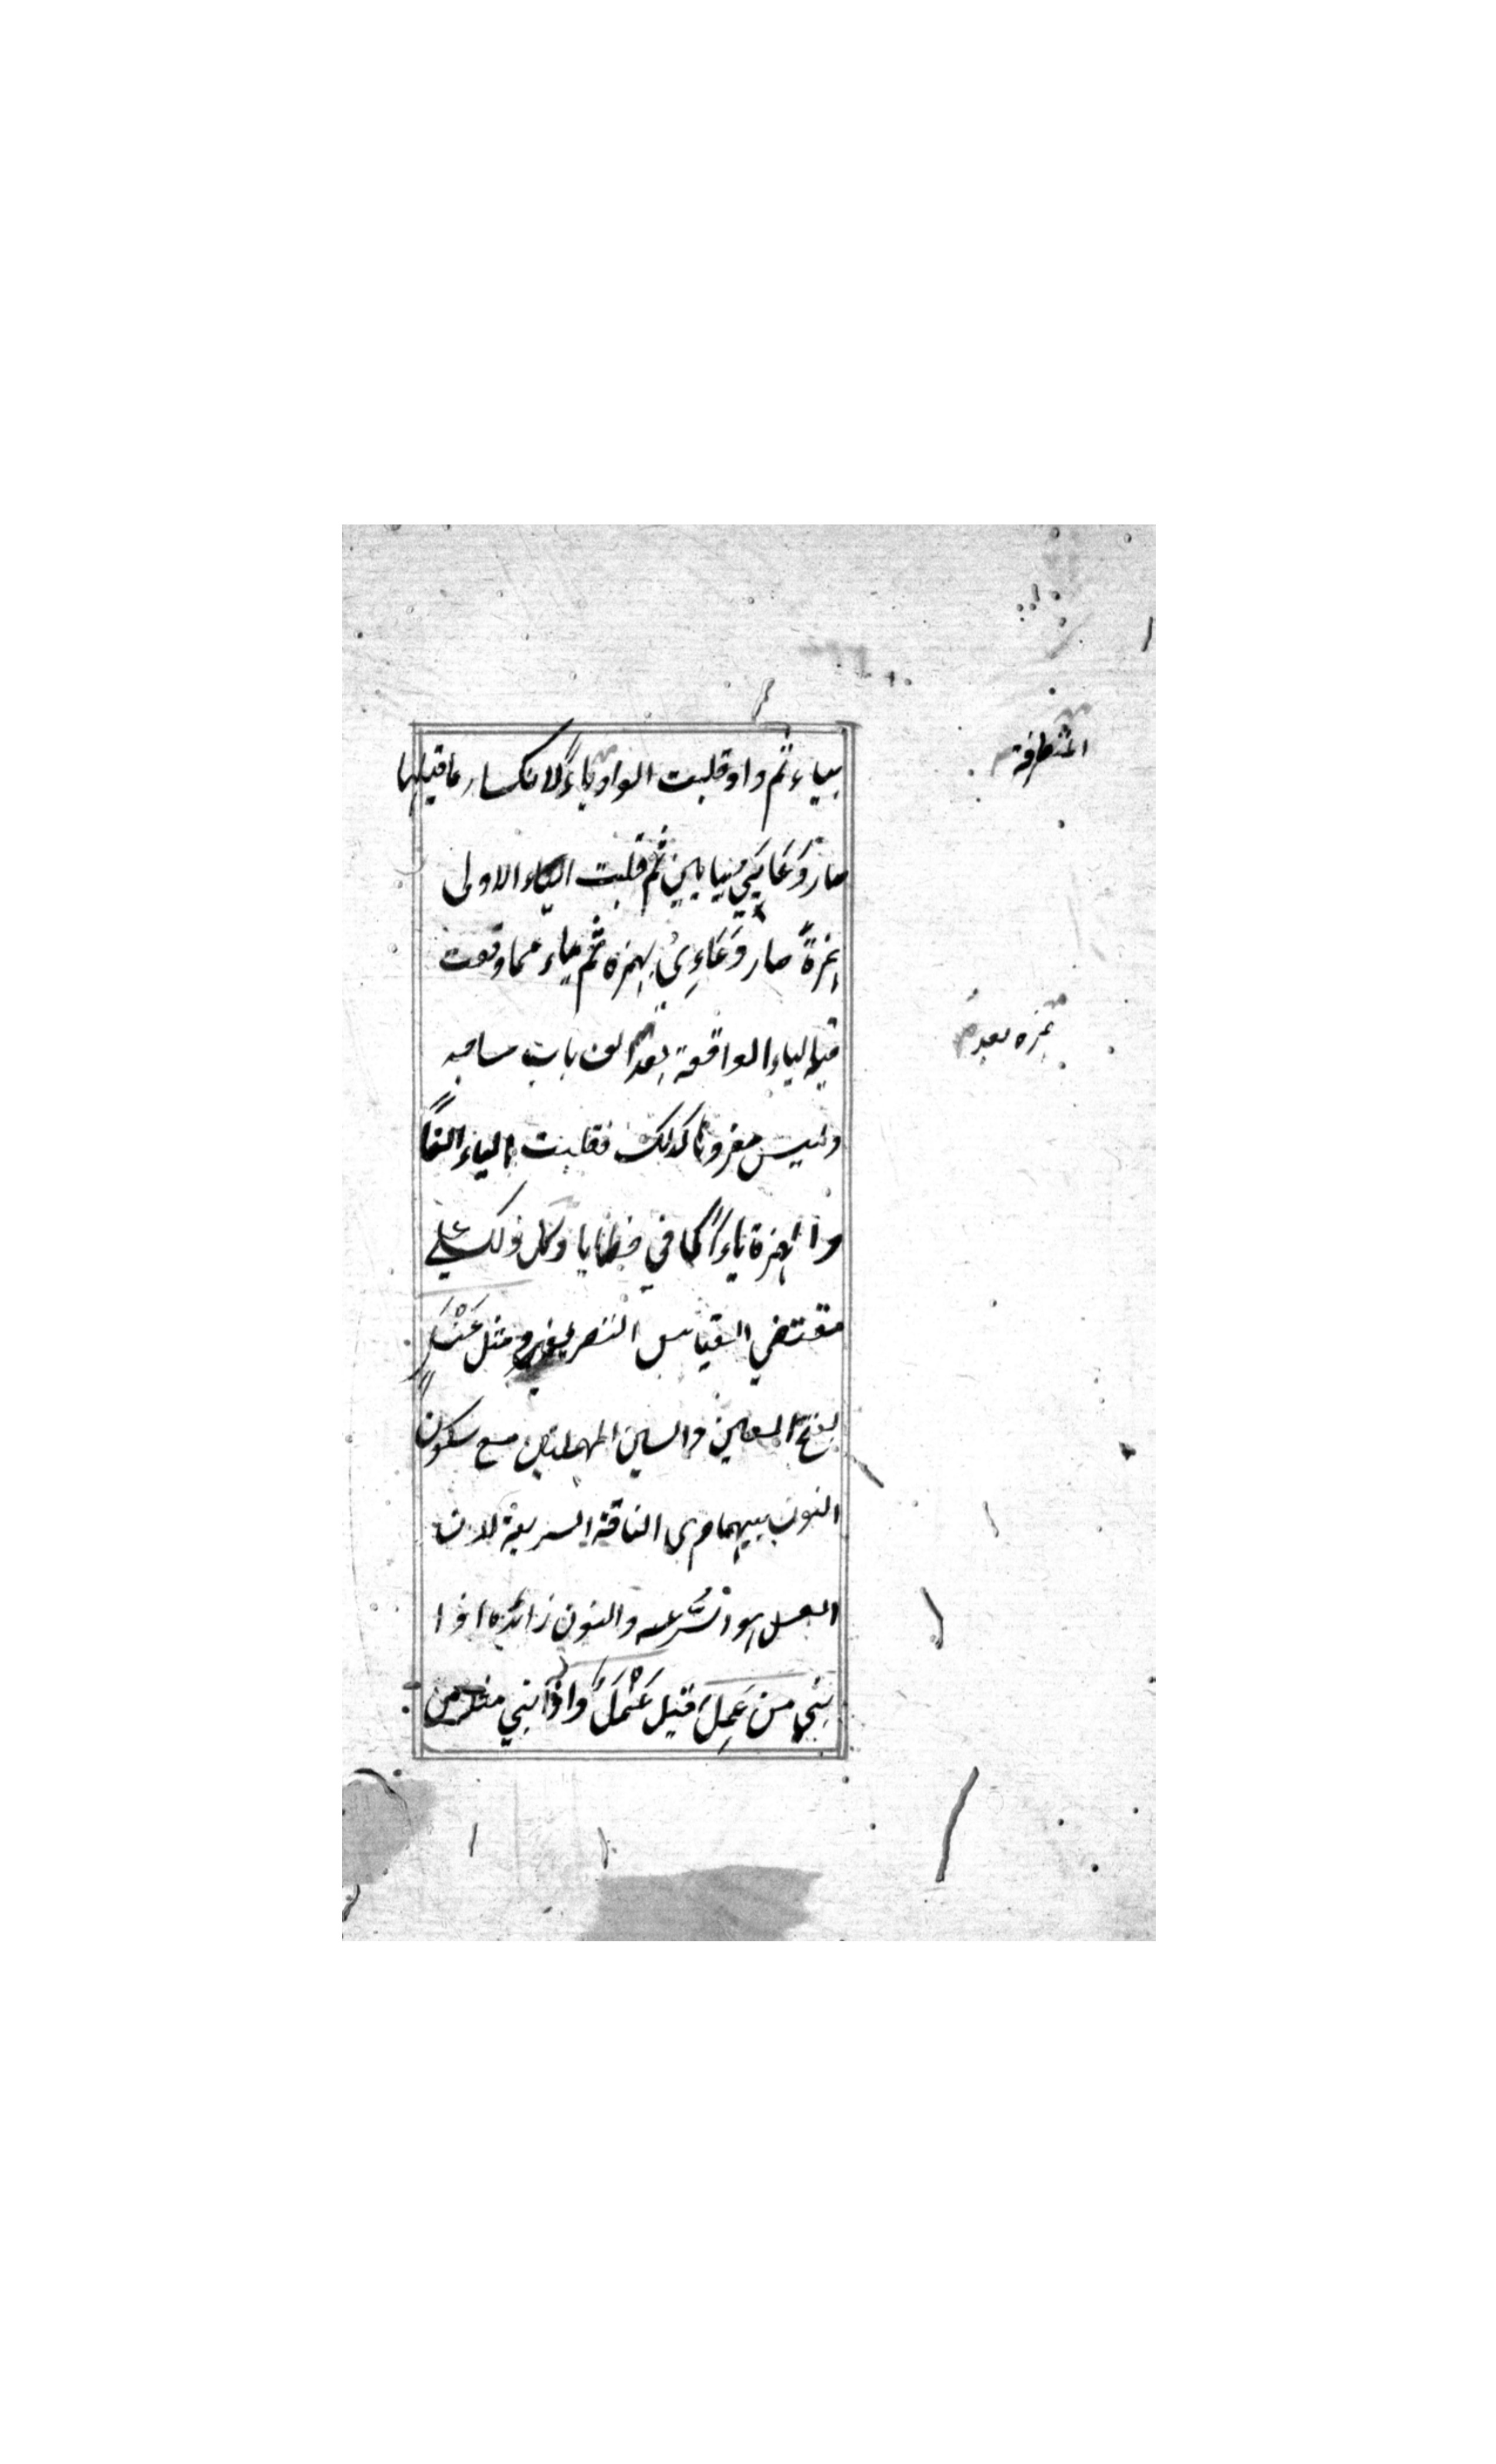 بياء ثم واو قلبت الواو ياءً لانكسار ما قبلها
المتطرفة
صار دَعَايِيُ بيايين ثم قلبت الياء الاولى
همزةً صار دَعَاءِيُ بهمزة ثم ياء مما وقعت
همزه بعد
الياء الواقعة بعد الف باب مساجد
وليس مفردها كذلك فقلبت الياء الفاً
والهمزة ياءً كما في خطايا وكل ذلك على
مقتضي القياس التصريفي ومثل عَنْسَلٍ
بفتح العين والسين المهملتين مع سكون
النون بينهما وهى الناقة السريعة لان
العسل هو السُّرعه والنون زائده اذا
بني من عَمِلَ قيل عَنْمَلٌ واذا بني من